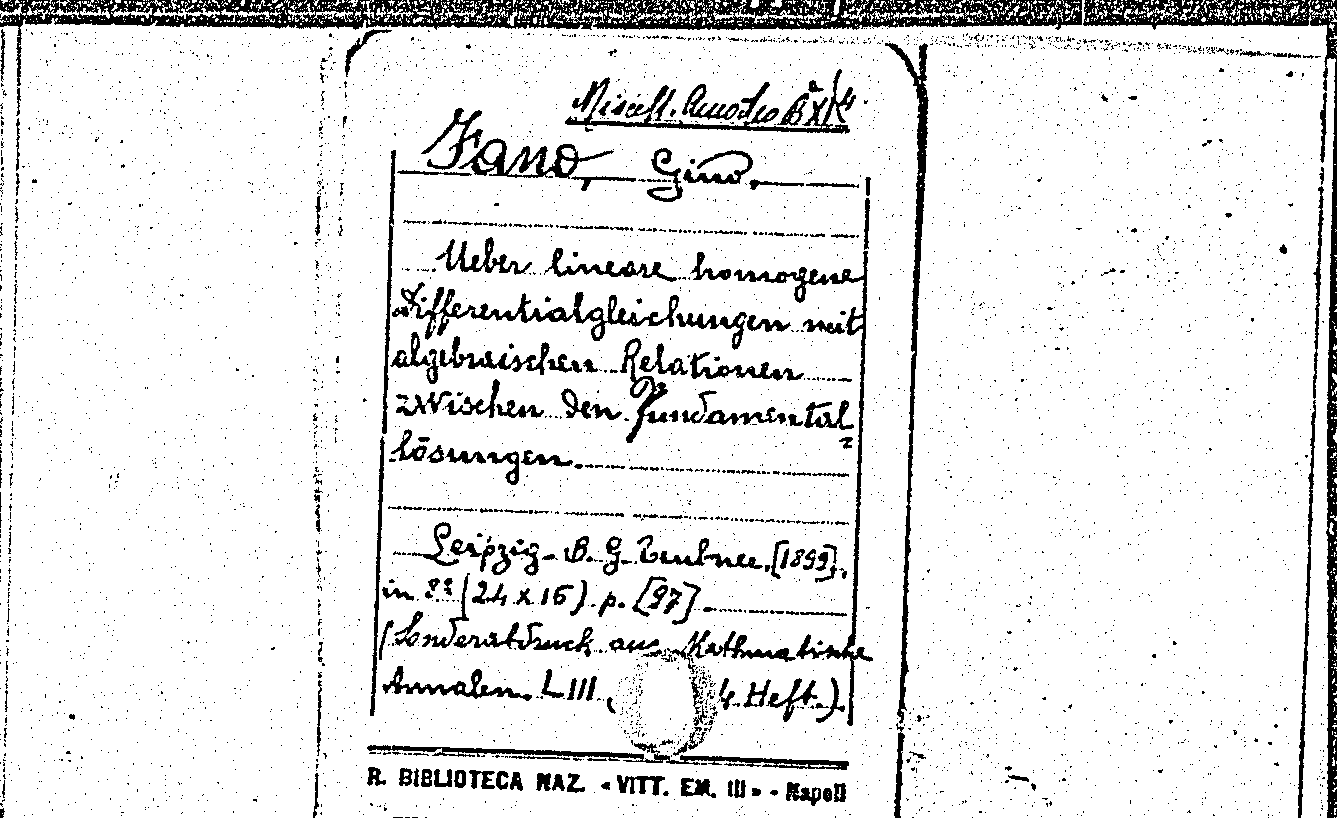 Miscell. Amodeo B
Fano, Gino.
Ueber lineare homogene
Differentialgleichungen mit
algebraischen Relationen
zwischen den Fundamental=
lösungen.
Leipzig - B. G. Teubner. [1899].
in 8º (24 x 16) p. [97]
(Sonderabdruck aus Mathmatische
Annalen. LIII, 4 Heft.).
R. BIBLIOTECA NAZ. «VITT. EM. III» - Napoli